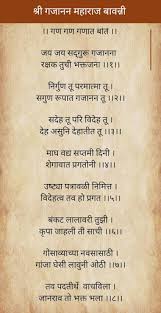 श्री गजानन महाराज बावन्नी
।। गण गण गणात बोतं ।।
जय जय सद्‌गुरू गजानना
रक्षक तुची भक्तजना ।।१।।
निर्गुण तू परमात्मा तू ।
सगुण रूपात गजानन तू ।।२।।
सदेह तू परि विदेह तू ।
देह असुनि देहातीत तू ।।३।।
माघ वद्य सप्तमी दिनी ।
शेगावात प्रगतोनी ।।४।।
उष्ट्या पत्रावळी निमित्त ।
विदेहत्व तव हो प्रगत ।।५।।
बंकट लालावरी तुझी ।
कृपा जाहली ती साची ।।६।।
गोसाव्याच्या नवसासाठी ।
गांजा घेसी लावुनी ओठी ।।७।।
तव पदतीर्थे वाचविला ।
जानराव तो भक्त भला ।।८।।